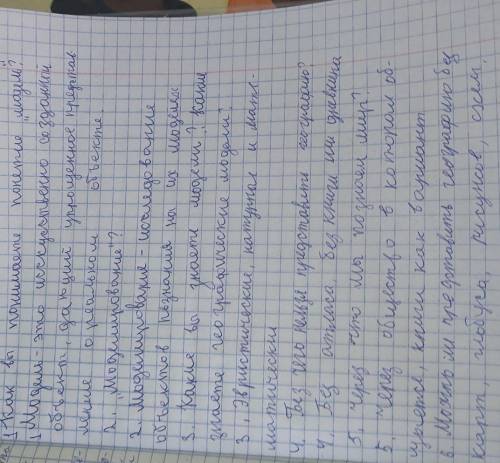 1 Как вы понимаете понятие "модель"?
1 Модель - это искусственно созданный
объект, дающий упрощенное представ
ление о реальном объекте
2. "Моделирование"?
2. Моделирование - исследование
объектов познания на их моделях
3. Какие вы знаете модели? Какие
знаете географические модели?
3. Эвристические, натурные и мате-
матические
4. Без чего нельзя представить географию?
4. Без атласа, без книги или учебника
5. Через что мы познаем мир?
5. Через общество в котором об-
щуется, книги как вариант
6. Можно ли представить географию без
карт, глобуса, рисунков, схем,